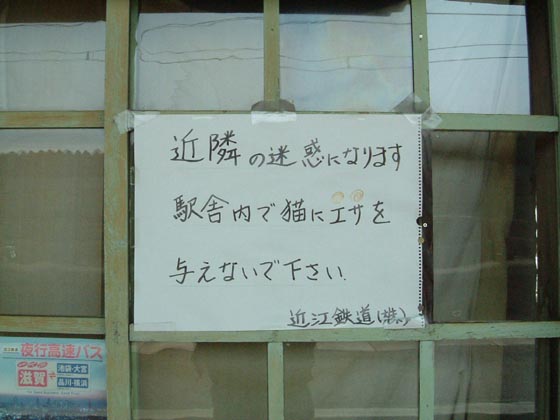 近隣の迷惑になります
駅舎内で猫にエサを
与えないで下さい.
近江鉄道(株)
夜行高速バス
滋賀
池袋・大宮
品川・横浜